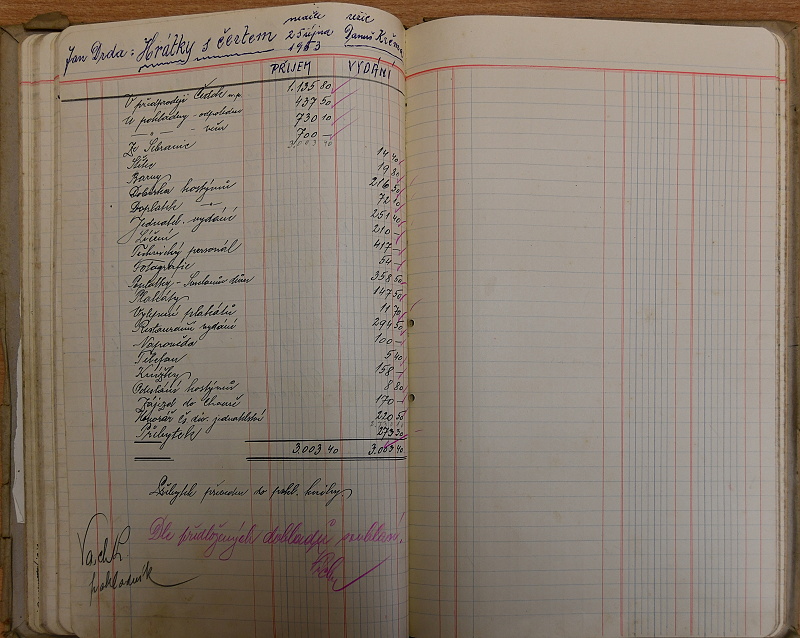 Jan Drda: Hrátky s čertem
neděle 25 října 1953
režie Danuš Křem
PŘÍJEM VYDÁNÍ
V předprodeji Čedok n.p. 1.135 80
U pokladny - odpoledne 437 50
— " — - večer 730 10
Ze Sebranic 700 —
3.003 40
Štětec 14 40
Barvy 19 80
Dobírka kostýmů 216 50
Doplatek — " — 72 10
Jednatel. vydání 251 40
Líčení 210 —
Technický personál 417 —
Fotografie 54 —
Poplatky - 358 50
Plakáty 147 50
Vylepení plakátů 11 70
Restaurační vydání 294 50
Nápověda 100 —
Telefon 5 40
Knížky 158 —
Odeslání kostýmů 8 80
Zájezd do 170 —
Honorář čs div. jednatelství 220 50
Přebytek 273 30
3.003 40 3.003 40
Přebytek převeden do pokl. knihy
Dle předložených dokladů souhlasí.
pokladník